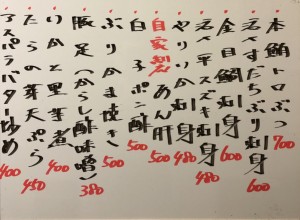 本鮪トロぶつ 700
活〆まだちぶり刺身 600
金目鯛刺身 600
活〆平スズキ刺身 480
やりいか刺 480
自家製あん肝 500
白子ポン酢 500
ぶりカマ焼き 500
豚足(からし酢味噌) 380
いかと里芋煮 400
たらの芽天ぷら 450
アスパラバター炒め 400